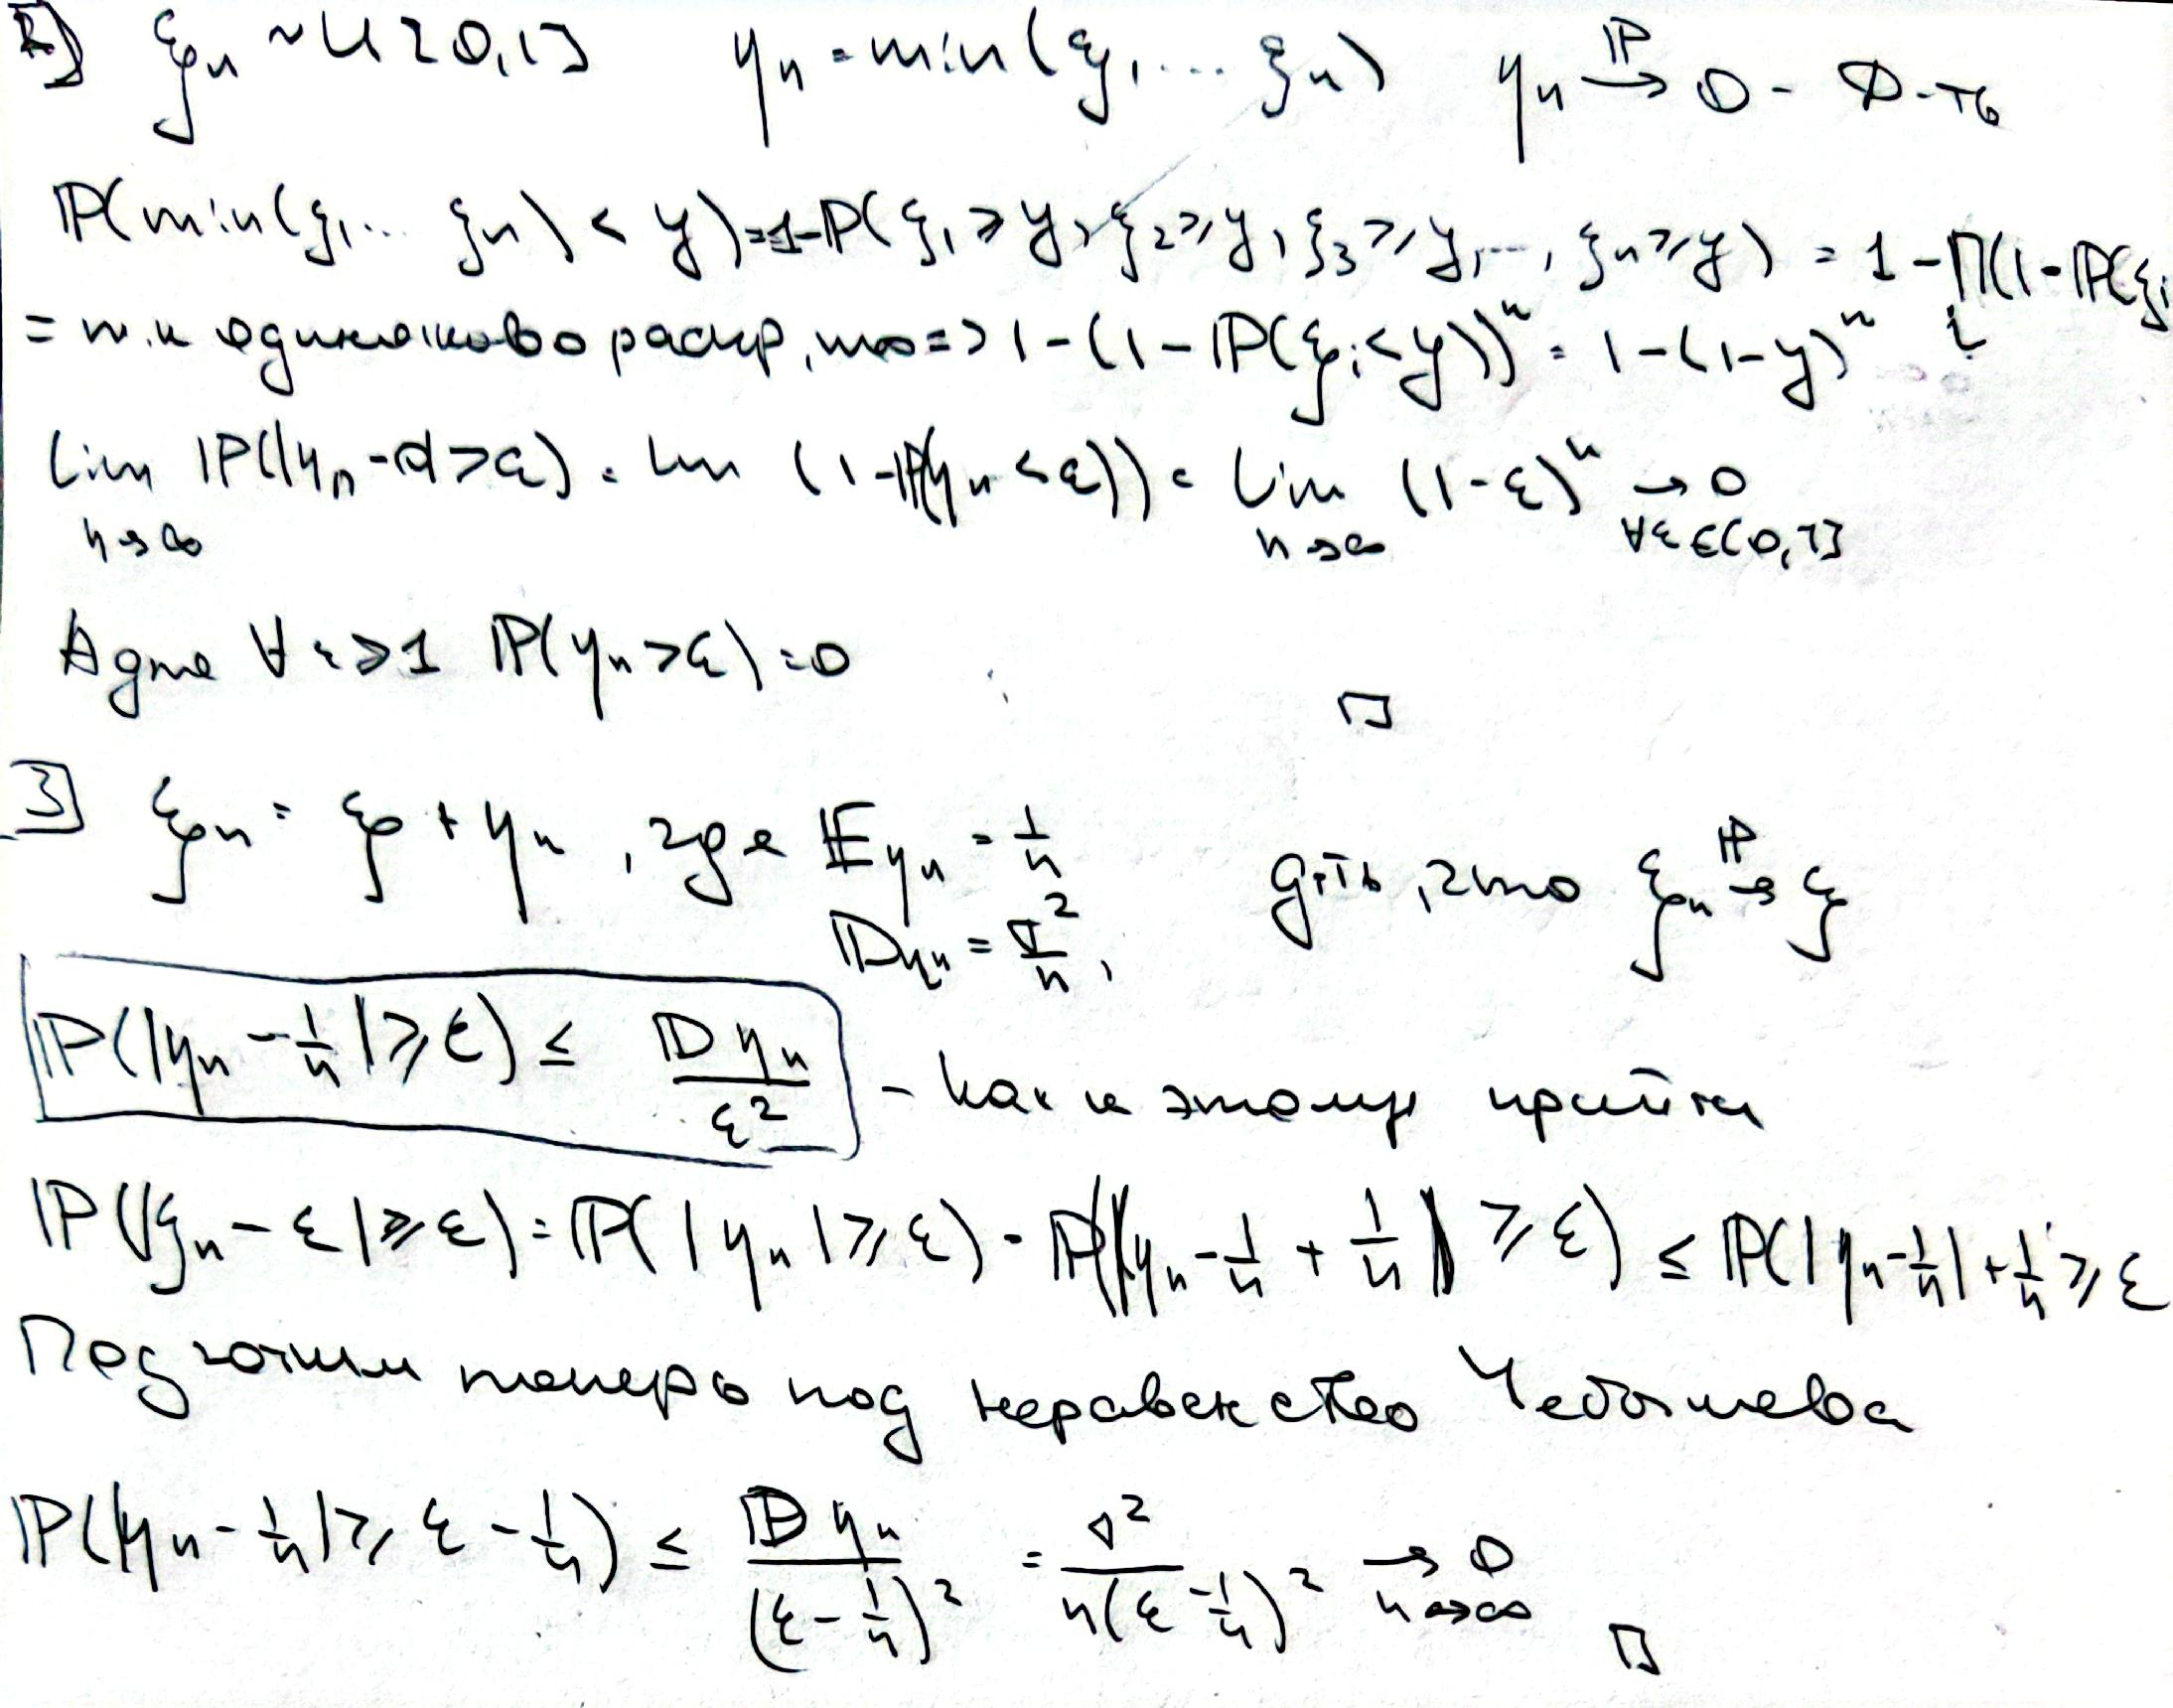 2) ξₙ ~ U[0,1] ηₙ = min(ξ₁ ... ξₙ) ηₙ →ᴾ 0 - Д-ть
ℙ(min(ξ₁... ξₙ) < y) = 1-ℙ(ξ₁ ≥ y, ξ₂ ≥ y, ξ₃ ≥ y, ..., ξₙ ≥ y) = 1 - ∏ᵢ(1-ℙ(ξᵢ
= т.к одинаково распр, то => 1-(1-ℙ(ξᵢ<y))ⁿ = 1-(1-y)ⁿ
lim_{n→∞} ℙ(|ηₙ-0|>ε) = lim (1-ℙ(ηₙ<ε)) = lim_{n→∞} (1-ε)ⁿ → 0 ∀ε∈(0,1]
А для ∀ε≥1 ℙ(ηₙ>ε)=0
□
3 ξₙ = ξ + ηₙ, где 𝔼ηₙ = 1/n
𝔻ηₙ = σ²/n, д-ть, что ξₙ →ᴾ ξ
ℙ(|ηₙ - 1/n| ≥ ε) ≤ 𝔻ηₙ/ε² - как к этому прийти
ℙ(|ξₙ - ξ| ≥ ε) = ℙ(|ηₙ| ≥ ε) = ℙ(|ηₙ - 1/n + 1/n| ≥ ε) ≤ ℙ(|ηₙ - 1/n| + 1/n ≥ ε
Подгоним теперь под неравенство Чебышева
ℙ(|ηₙ - 1/n| ≥ ε - 1/n) ≤ 𝔻ηₙ/(ε - 1/n)² = σ²/n(ε - 1/n)² →_{n→∞} 0
□